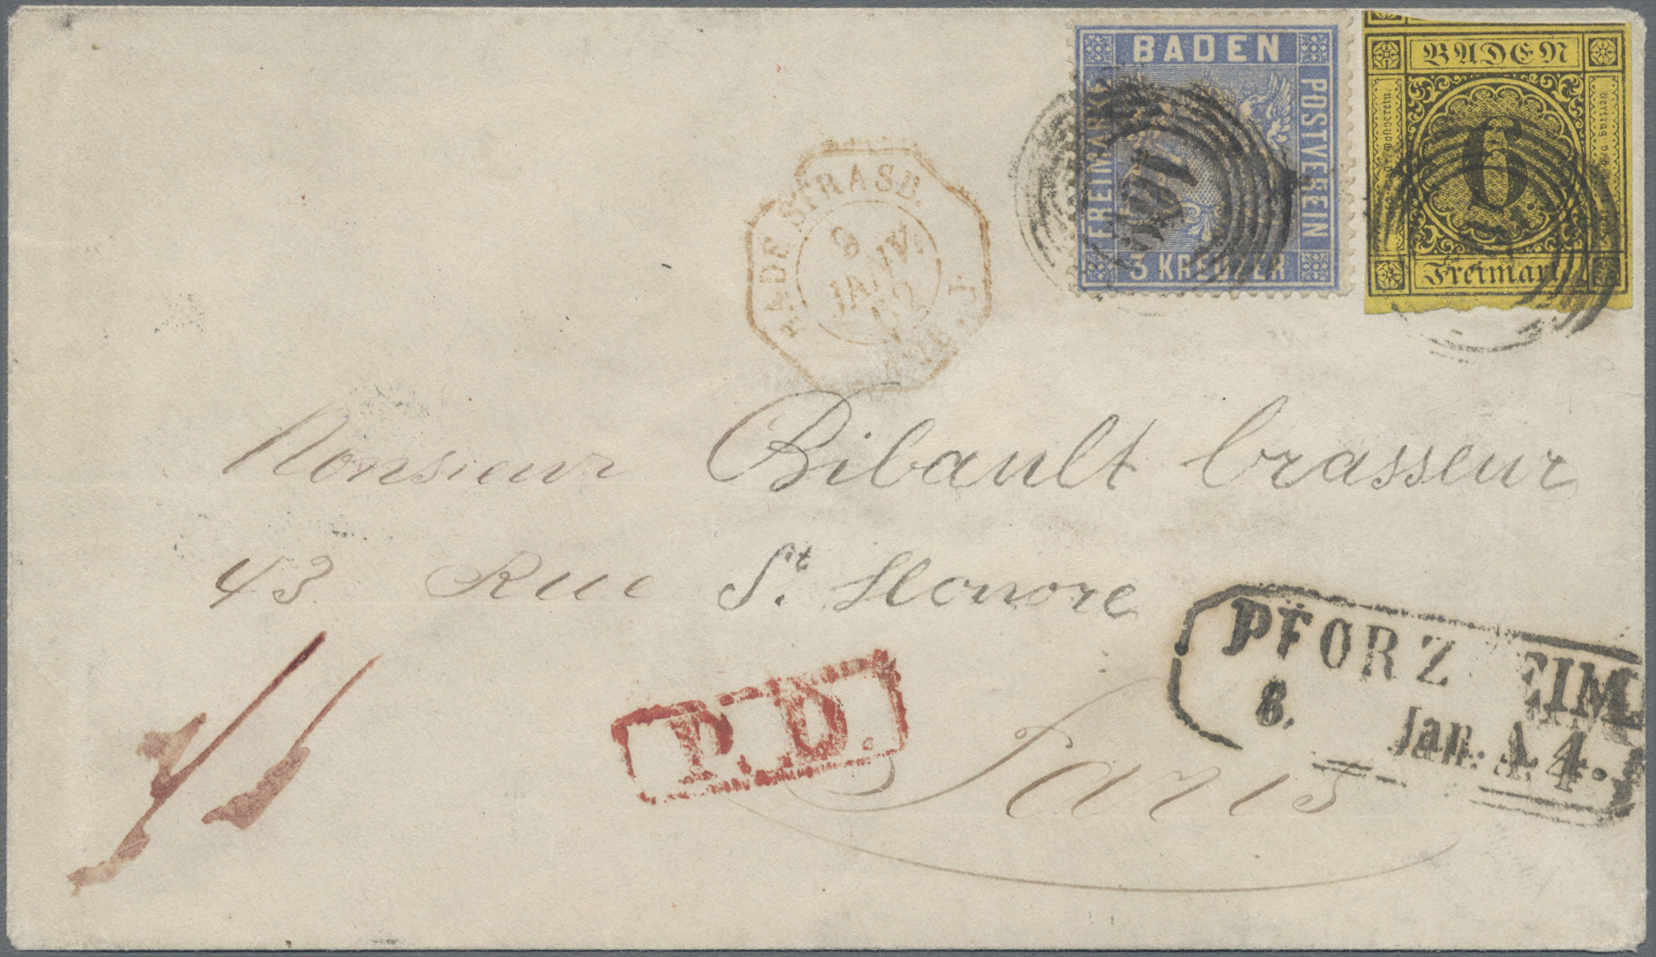 BADEN
FREIMARKE
POSTVEREIN
3 KREUZER
BADEN
6
Freimarke
BADE STRASB.
9
JANV.
62
Monsieur Bibault brasseur
43 Rue St. Honore
P.D.
Paris
PFORZHEIM
8. Jan.